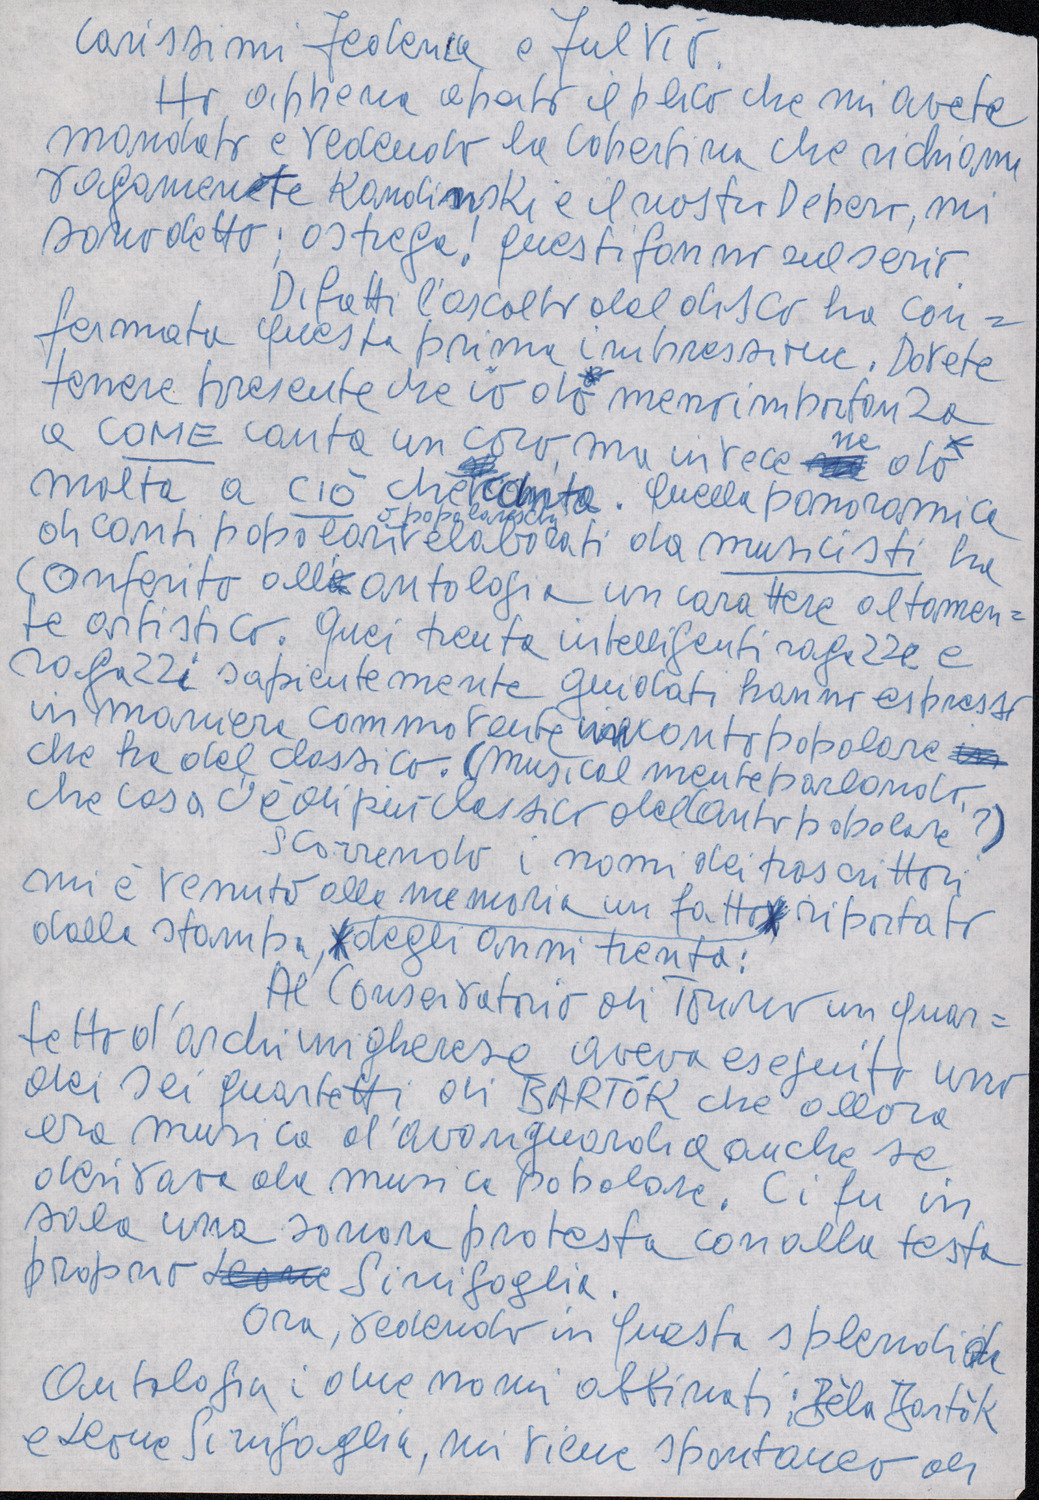 Carissimi Federica e Fulvio.
Ho appena aperto il plico che mi avete
mandato e vedendo la copertina che richiama
vagamente Kandinski e il nostro Depero, mi
sono detto: ostrega! questi fanno sul serio.
Difatti l'ascolto del disco ha con=
fermata questa prima impressione. Dovete
tenere presente che io do meno importanza
a COME canta un coro, ma invece ne do
molta a CIÒ che canta. Quella panoramica
di canti popolari o popolareschi relaborati da musicisti ha
conferito all'antologia un carattere altamen=
te artistico. Quei trenta intelligenti ragazze e
ragazzi sapientemente guidati hanno espresso
in maniera commovente il canto popolare
che ha del classico. (Musicalmente parlando,
che cosa c'è di più classico del canto popolare?)
Scorrendo i nomi dei trascrittori
mi è venuto alla memoria un fatto riportato
dalla stampa, degli anni trenta:
Al Conservatorio di Torino un quar=
tetto d'archi ungherese aveva eseguito uno
dei sei quartetti di BARTÓK che allora
era musica d'avanguardia anche se
derivava da musica popolare. Ci fu in
sala una sonora protesta con alla testa
proprio Sinigaglia.
Ora, vedendo in questa splendida
Antologia i due nomi abbinati: Béla Bartók
e Leone Sinigaglia, mi viene spontaneo di